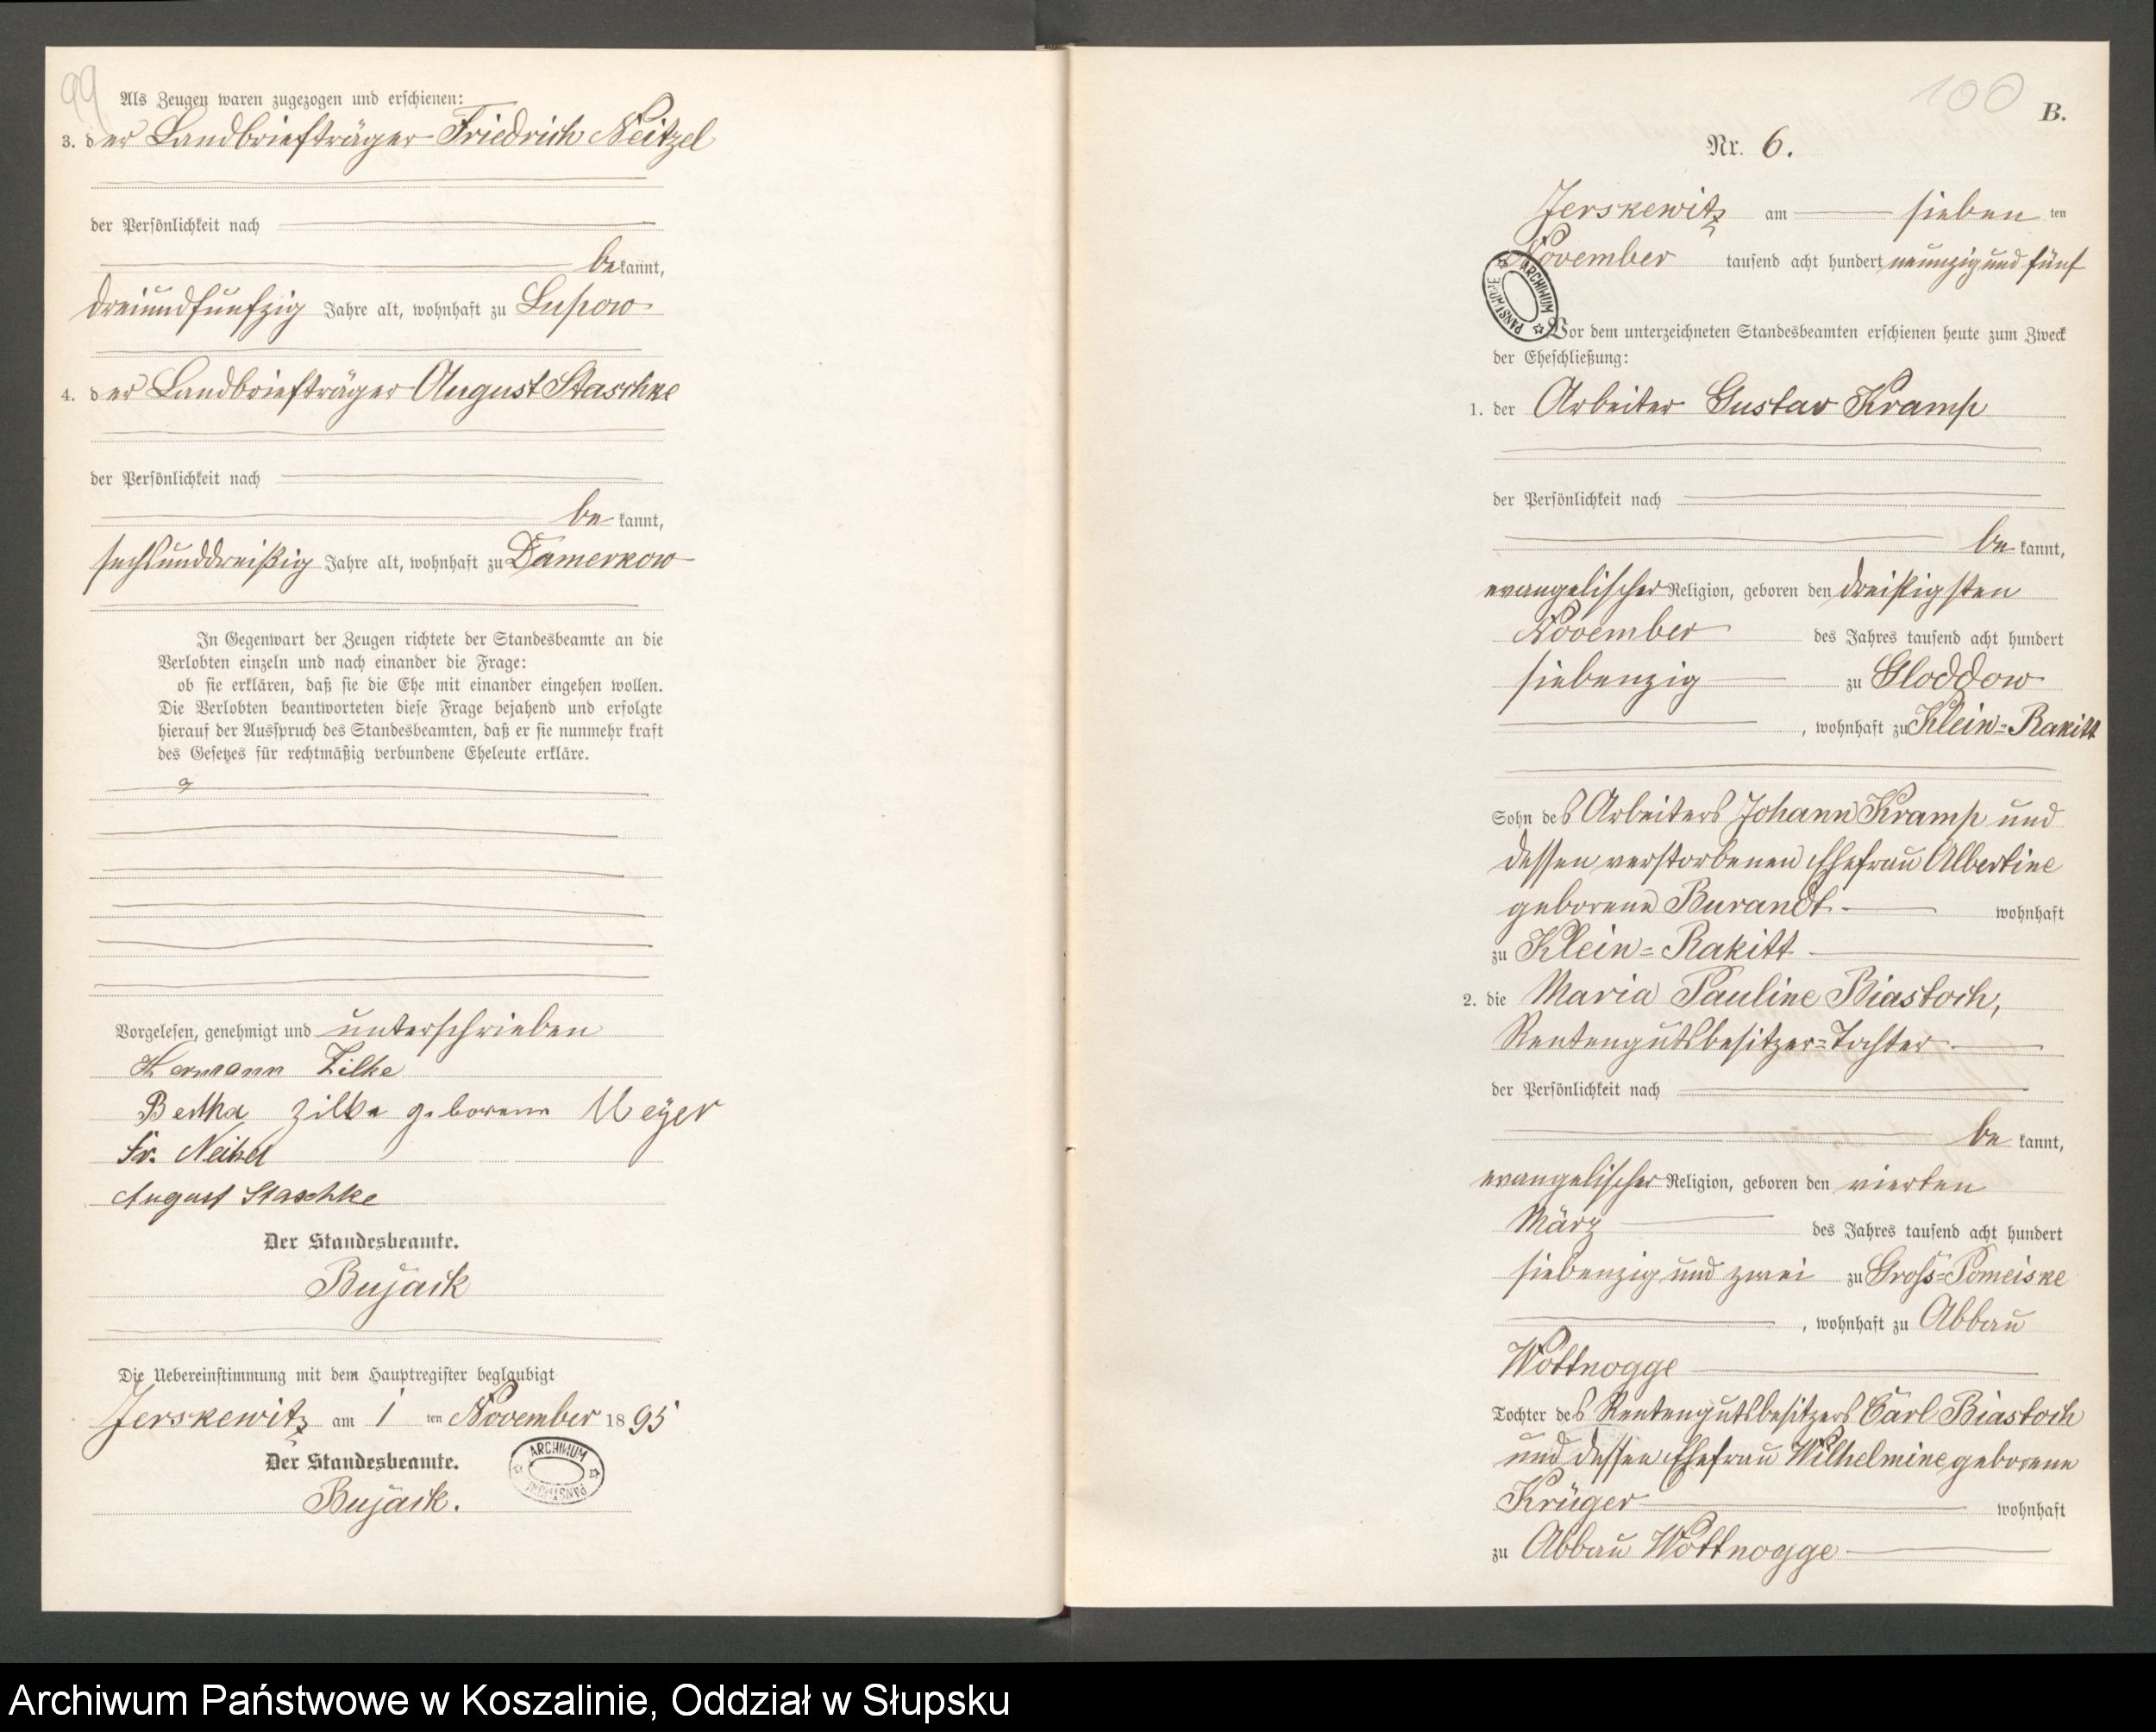 99
Als Zeugen waren zugezogen und erschienen:
3. der Landbriefträger Friedrich Neitzel
der Persönlichkeit nach
bekannt,
dreiundfünfzig Jahre alt, wohnhaft zu Lupow
4. der Landbriefträger August Staschke
der Persönlichkeit nach
bekannt,
sechsunddreißig Jahre alt, wohnhaft zu Damerkow
In Gegenwart der Zeugen richtete der Standesbeamte an die
Verlobten einzeln und nach einander die Frage:
ob sie erklären, daß sie die Ehe mit einander eingehen wollen.
Die Verlobten beantworteten diese Frage bejahend und erfolgte
hierauf der Ausspruch des Standesbeamten, daß er sie nunmehr kraft
des Gesetzes für rechtmäßig verbundene Eheleute erkläre.
Vorgelesen, genehmigt und unterschrieben
Hermann Zilke
Bertha Zilke geborene Meyer
Fr. Neitzel
August Staschke
Der Standesbeamte.
Bujack
Die Uebereinstimmung mit dem Hauptregister beglaubigt
Jerskewitz am 1 ten November 1895
Der Standesbeamte.
Bujack.
ARCHIWUM PAŃSTWOWE
100
B.
Nr. 6.
Jerskewitz am sieben ten
November tausend acht hundert neunzig und fünf
ARCHIWUM PAŃSTWOWE
Vor dem unterzeichneten Standesbeamten erschienen heute zum Zweck
der Eheschließung:
1. der Arbeiter Gustav Kramp
der Persönlichkeit nach
bekannt,
evangelischer Religion, geboren den dreißigsten
November des Jahres tausend acht hundert
siebenzig zu Gloddow
, wohnhaft zu Klein-Rakitt
Sohn des Arbeiters Johann Kramp und
dessen verstorbenen Ehefrau Albertine
geborene Burandt wohnhaft
zu Klein-Rakitt
2. die Maria Pauline Biastoch,
Rentengutsbesitzer-Tochter
der Persönlichkeit nach
bekannt,
evangelischer Religion, geboren den vierten
März des Jahres tausend acht hundert
siebenzig und zwei zu Groß-Pomeiske
, wohnhaft zu Abbau
Wottnogge
Tochter des Rentengutsbesitzers Carl Biastoch
und dessen Ehefrau Wilhelmine geborene
Krüger wohnhaft
zu Abbau Wottnogge
Archiwum Państwowe w Koszalinie, Oddział w Słupsku